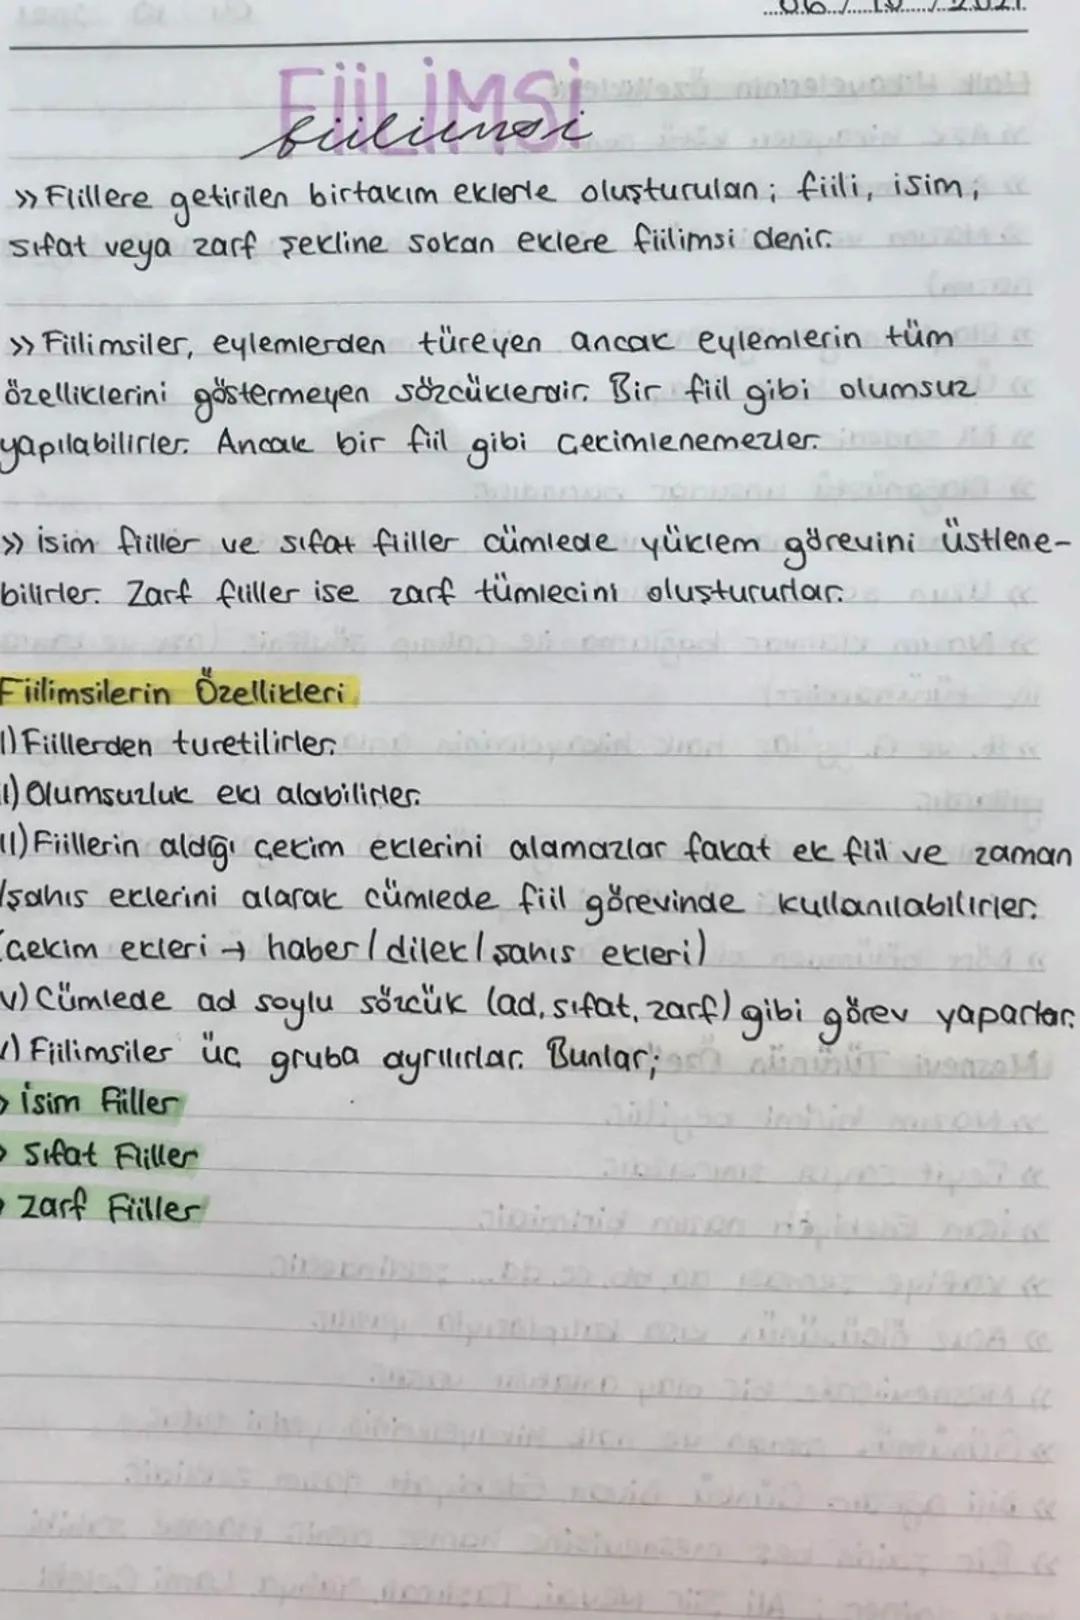 06/10/2021
FİİLİMSİ
fiilimsi
>> Fiillere getirilen birtakım eklerle oluşturulan; fiili, isim,
sıfat veya zarf şekline sokan eklere fiilimsi denir.
>> Fiilimsiler, eylemlerden türeyen ancak eylemlerin tüm
özelliklerini göstermeyen sözcüklerdir. Bir fiil gibi olumsuz
yapılabilirler. Ancak bir fiil gibi Çekimlenemezler.
>> isim fiiller ve sıfat fiiller cümlede yüklem görevini üstlene-
bilirler. Zarf fiiller ise zarf tümlecini oluştururlar.
Fiilimsilerin Özellikleri
I) Fiillerden turetilirler.
II) Olumsuzluk eki alabilirler.
III) Fiillerin aldığı çekim eklerini alamazlar fakat ek fiil ve zaman
/şahıs eklerini alarak cümlede fiil görevinde kullanılabilirler.
(çekim ekleri → haber / dilek / şahıs ekleri)
IV) Cümlede ad soylu sözcük (ad, sıfat, zarf) gibi görev yaparlar.
V) Fiilimsiler üç gruba ayrılırlar. Bunlar;
> İsim Fiiller
> Sıfat Fiiller
> Zarf Fiiller